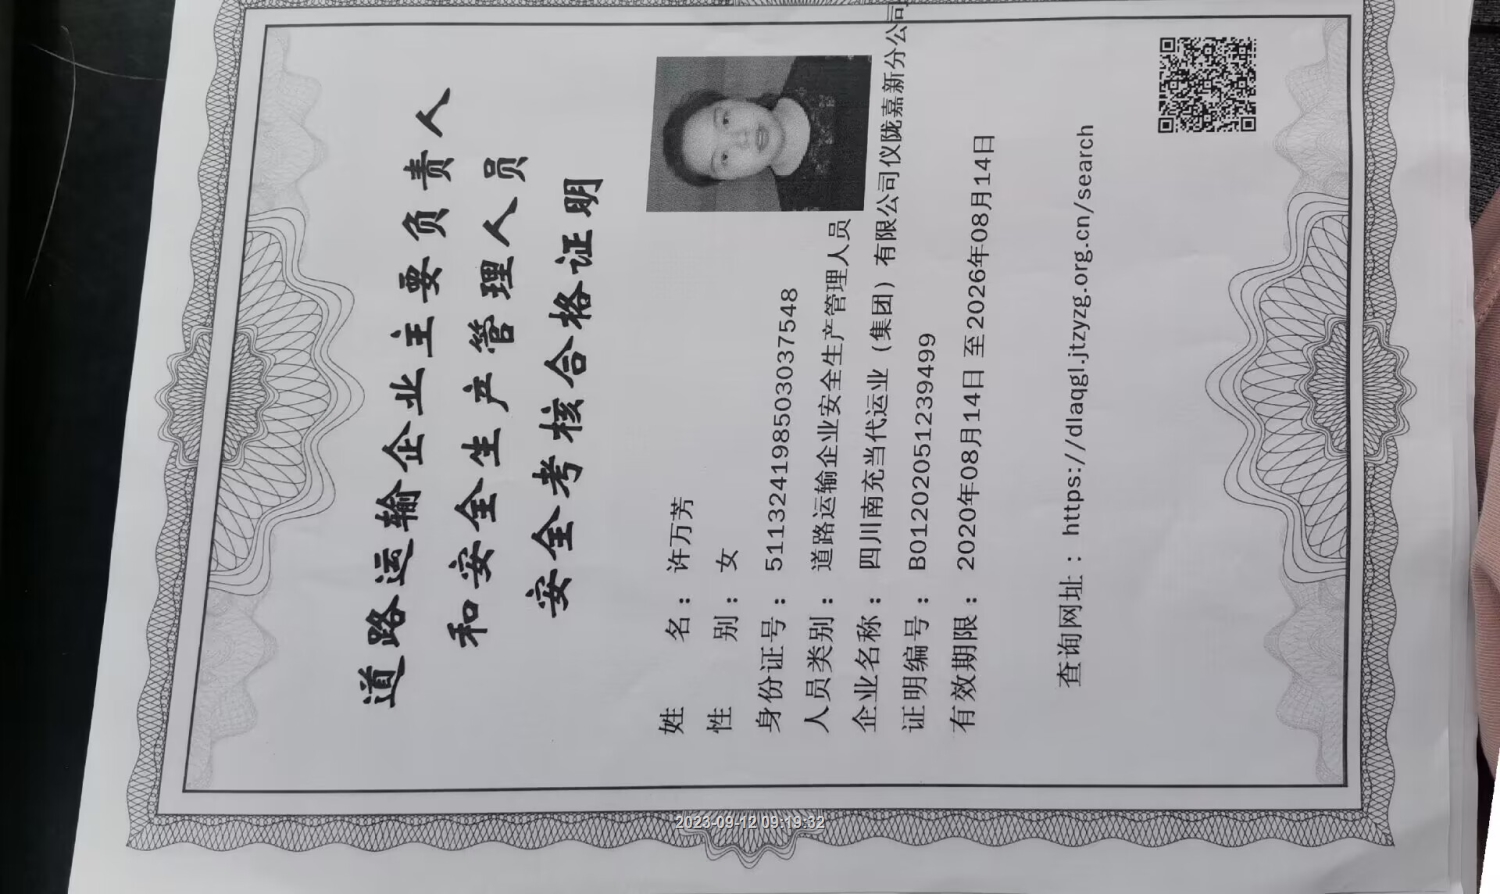 道路运输企业主要负责人
和安全生产管理人员
安全考核合格证明
姓 名：许万芳
性 别：女
身份证号：511324198503037548
人员类别：道路运输企业安全生产管理人员
企业名称：四川南充当代运业（集团）有限公司仪陇嘉新分公司
证明编号：B0120205123949​9
有效期限：2020年08月14日 至2026年08月14日
查询网址：https://dlaqgl.jtzyzg.org.cn/search
2023-09-12 09:19:32